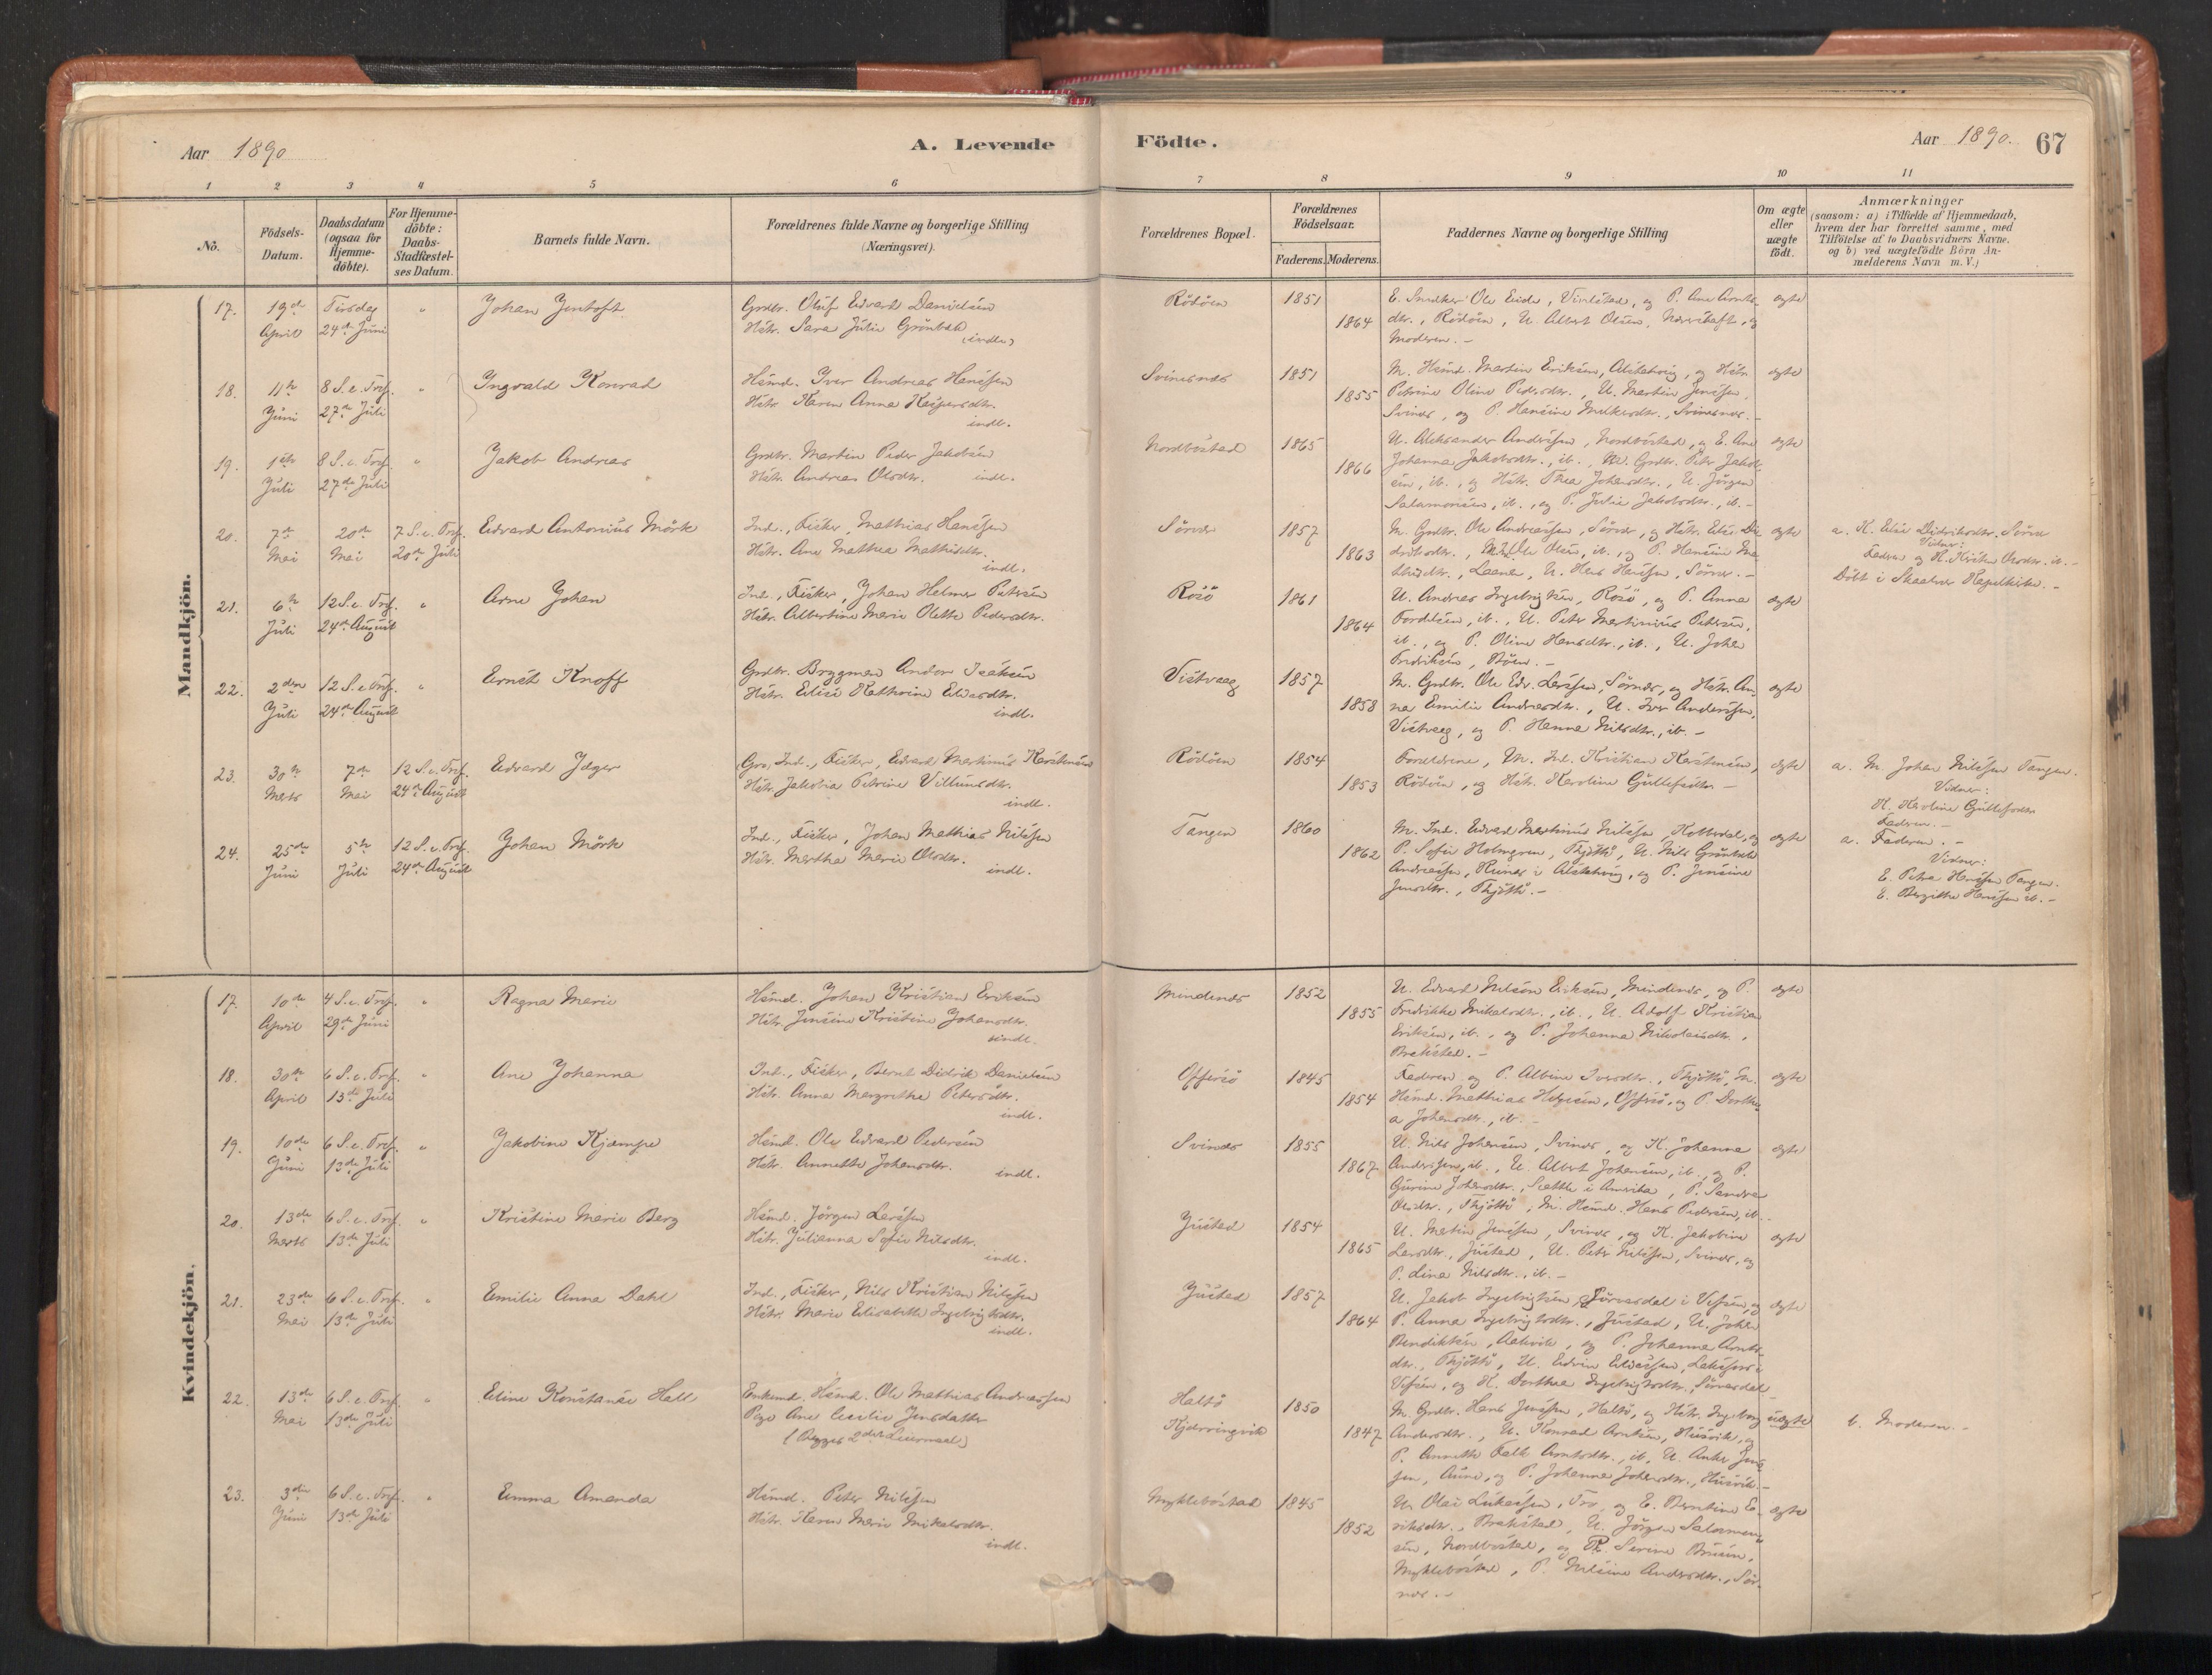 Aar 1890
A. Levende
Födte.
Aar 1890.
67
1 2 3 4 5 6 7 8 9 10 11
No.
Födsels-
Datum.
Daabsdatum
(ogsaa for
Hjemme-
döbte).
For Hjemme-
döbte:
Daabs-
Stadfæstel-
ses Datum.
Barnets fulde Navn.
Forældrenes fulde Navne og borgerlige Stilling
(Næringsvei).
Forældrenes Bopæl.
Forældrenes
Födselsaar.
Faderens. Moderens.
Faddernes Navne og borgerlige Stilling
Om ægte
eller
uægte
födt.
Anmærkninger
(saasom: a) i Tilfælde af Hjemmedaab,
hvem der har forrettet samme, med
Tilföielse af to Daabsvidners Navne.
og b) ved uægtefödte Börn An-
melderens Navn m. V.)
Mandkjön.
17.
19de
April
Tirsdag
24de Juni
"
Johan Jentoft
Grdbr. Oluf Edvard Danielsen
Hstr. Sara Julie Grönbek
indl.
Rödöen
1851
1864
E. Snedker Ole Eide, Vinlstad, og P. Ane Arnts-
dtr., Rödöen, U. Albert Olsen, og
Moderen. -
ægte
18.
11te
Juni
8 S. e. Tref.
27de Juli
"
Ingvald Konrad
Hsmd. Iver Andreas Hanssen
Hstr. Karen Anna Kaspersdtr.
indl.
Svinesnes
1851
1855
M. Hsmd. Martin Eriksen, Alstahoug, og Hstr.
Petrine Oline Pedersdtr., U. Martin Jenssen,
Svines, og P. Hansine Melkersdtr., Svinesnes. -
ægte
19.
1ste
Juli
8 S. e. Tref.
27de Juli
"
Jakob Andreas
Grdbr. Martin Peder Jakobsen
Hstr. Andrea Olsdtr. indl.
Nordbostad
1865
1866
U. Aleksander Anderssen, Nordbostad, og E. Ane
Johanna Jakobsdtr., ib., M. Grdbr. Peter Jakob-
sen, ib., og Hstr. Thea Johansdtr., U. Jörgen
Salamonsen, ib., og P. Julie Jakobsdtr., ib. -
ægte
20.
7de
Mai
20de
Mai
7 S. e. Tref.
20de Juli
Edvard Antonius Mörk
Ind., Fisker, Mathias Hanssen
Hstr. Ane Mathea Mathisdtr.
indl.
Sörnes
1857
1863
M. Grdbr. Ole Andreassen, Sörnes, og Hstr. Elise Di-
driksdtr., Ole Olsen, ib., og P. Hansine Ma-
thisdtr., Laanes, U. Hans Hanssen, Sörnes. -
ægte
a. K. Elise Didriksdtr. Sörnes
Vidner:
Faderen og K. Kirsten Olsdtr. ib. -
Döbt i Skaalvær Kapelkirke. -
21.
6te
Juli
12 S. e. Tref.
24de August
"
Arne Johan
Ind., Fisker, Johan Helmer Petersen
Hstr. Albertine Marie Olette Pedersdtr.
Rosö
1861
1864
U. Andreas Ingebrigtsen, Rosö, og P. Anna
Fordelsen, ib., U. Peter Martinius Petersen,
ib., og P. Oline Hansdtr., ib., U. Johan
Fredriksen, Böen. -
ægte
22.
2den
Juli
12 S. e. Tref.
24de August
"
Ernst Knoff
Grdbr. Brygmand Andor Isaksen
Hstr. Elise Kathrine Eliasdtr.
indl.
Vistvaag
1857
1858
M. Grdbr. Ole Edv. Larssen, Sörnes, og Hstr. An-
na Emilie Andreasdtr., U. Iver Anderssen,
Vistvaag, og P. Hanna Nilsdtr., ib. -
ægte
23.
30te
Marts
7de
Mai
12 S. e. Tref.
24de August
Edvard Jæger
Grv. Ind., Fisker, Edvard Martinus Karstensen
Hstr. Jakobia Petrine Villumsdtr.
indl.
Rödöen
1854
1853
Forældrene, M. Ind. Kristian Karstensen,
Rödöen, og Hstr. Karoline Gullefsdtr. -
ægte
a. M. Johan Nilssen Tangen.
Vidner:
K. Karoline Gullefsdtr.
Faderen. -
24.
25de
Juni
5te
Juli
12 S. e. Tref.
24de August
Johan Mörk
Ind., Fisker, Johan Mathias Nilssen
Hstr. Martha Marie Olsdtr.
indl.
Tangen
1860
1862
M. Ind. Edvard Martinus Nilssen, Kobberdal, og
P. Sofie Holmgren, Thjöttö, U. Nils Grönbek
Andreassen, Runes i Alstahoug, og P. Jensine
Jensdtr., Thjöttö. -
ægte
a. Faderen. -
Vidner:
E. Petra Hanssen Tangen.
E. Bergitha Hanssen ib. -
Kvindekjön.
17.
10de
April
4 S. e. Tref.
29de Juni
"
Ragna Marie
Hsmd. Johan Kristian Eriksen
Hstr. Jensine Kristine Johansdtr.
indl.
Mindenes
1852
1855
U. Edvard Nelson Eriksen, Mindenes, og P.
Fredrikke Mikalsdtr., ib., U. Adolf Kristian
Eriksen, ib., og P. Johanna Nikolaisdtr.,
Brækstad. -
ægte
18.
30te
April
6 S. e. Tref.
13de Juli
"
Ane Johanna
Ind., Fisker, Bernt Didrik Danielsen
Hstr. Anna Margrethe Petersdtr.
indl.
Offersö
1845
1854
Faderen og P. Albine Iversdtr., Thjöttö, M.
Hsmd. Mathias Helgesen, Offersö, og P. Dorthe-
a Johansdtr., ib. -
ægte
19.
10de
Juni
6 S. e. Tref.
13de Juli
"
Jakobine Kjæmpe
Hsmd. Ole Edvard Pedersen
Hstr. Annette Johansdtr.
indl.
Svines
1855
1867
U. Nils Johansen, Svines, og K. Johanna
Anderssen, ib., U. Albert Johansen, ib., og P.
Gurine Johansdtr., Seattle i Amerika, P. Sandra
Olsdtr., Thjöttö, M. Hsmd. Hans Pedersen, ib.
ægte
20.
13de
Marts
6 S. e. Tref.
13de Juli
"
Kristine Marie Berg
Hsmd. Jörgen Larssen
Hstr. Julianna Sofie Nilsdtr.
indl.
Justad
1854
1865
U. Martin Jenssen, Svines, og K. Jakobine
Larsdtr., Justad, U. Peter Nilssen, Svines, og
P. Lina Nilsdtr., ib. -
ægte
21.
23de
Mai
6 S. e. Tref.
13de Juli
"
Emilie Anna Dahl
Ind., Fisker, Nils Kristian Nilssen
Hstr. Marie Elisabeth Ingebrigtsdtr.
indl.
Justad
1857
1864
U. Jakob Ingebrigtsen, Sörvasdal i Vefsen, og
P. Anna Ingebrigtsdtr., Justad, U. Johan
Bendiktsen, Aakvik, og P. Johanna Arnts-
dtr., Thjöttö, U. Edvin Eliassen, Laksfors i
Vefsen, og K. Dorthea Ingebrigtsdtr., Sörvasdal
ægte
22.
13de
Mai
6 S. e. Tref.
13de Juli
"
Eline Konstanse Hall
Enkemd. Hsmd. Ole Mathias Andreassen
Pige Ane Cecilie Jensdatter
(Begges 2det Leiermaal)
Haltö
Kjærringvik
1850
1847
M. Grdbr. Hans Jenssen, Haltö, og Hstr. Ingeborg
Andersdtr., U. Konrad Arntsen, Husvik, og
P. Annette Falk Arntsdtr., ib., U. Anker Jens-
sen, Aune, og P. Johanna Johansdtr., Husvik. -
uægte
b. Moderen. -
23.
3die
Juni
6 S. e. Tref.
13de Juli
"
Emma Amanda
Hsmd. Peter Nilssen
Hstr. Karen Marie Mikalsdtr.
indl.
Myklebostad
1845
1852
U. Olai Lukassen, Tro, og E. Berntine E-
riksdtr., Brækstad, U. Jörgen Salamon-
sen, Nordbostad, og P. Serine Bruun,
Myklebostad, P. Nilsine Andersdtr., Sör-
nes. -
ægte